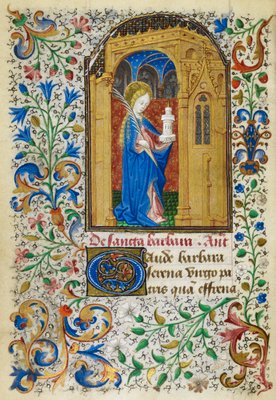 De sancta barbara. Ant
Gaude barbara
serena virgo pa
tris qua effrena